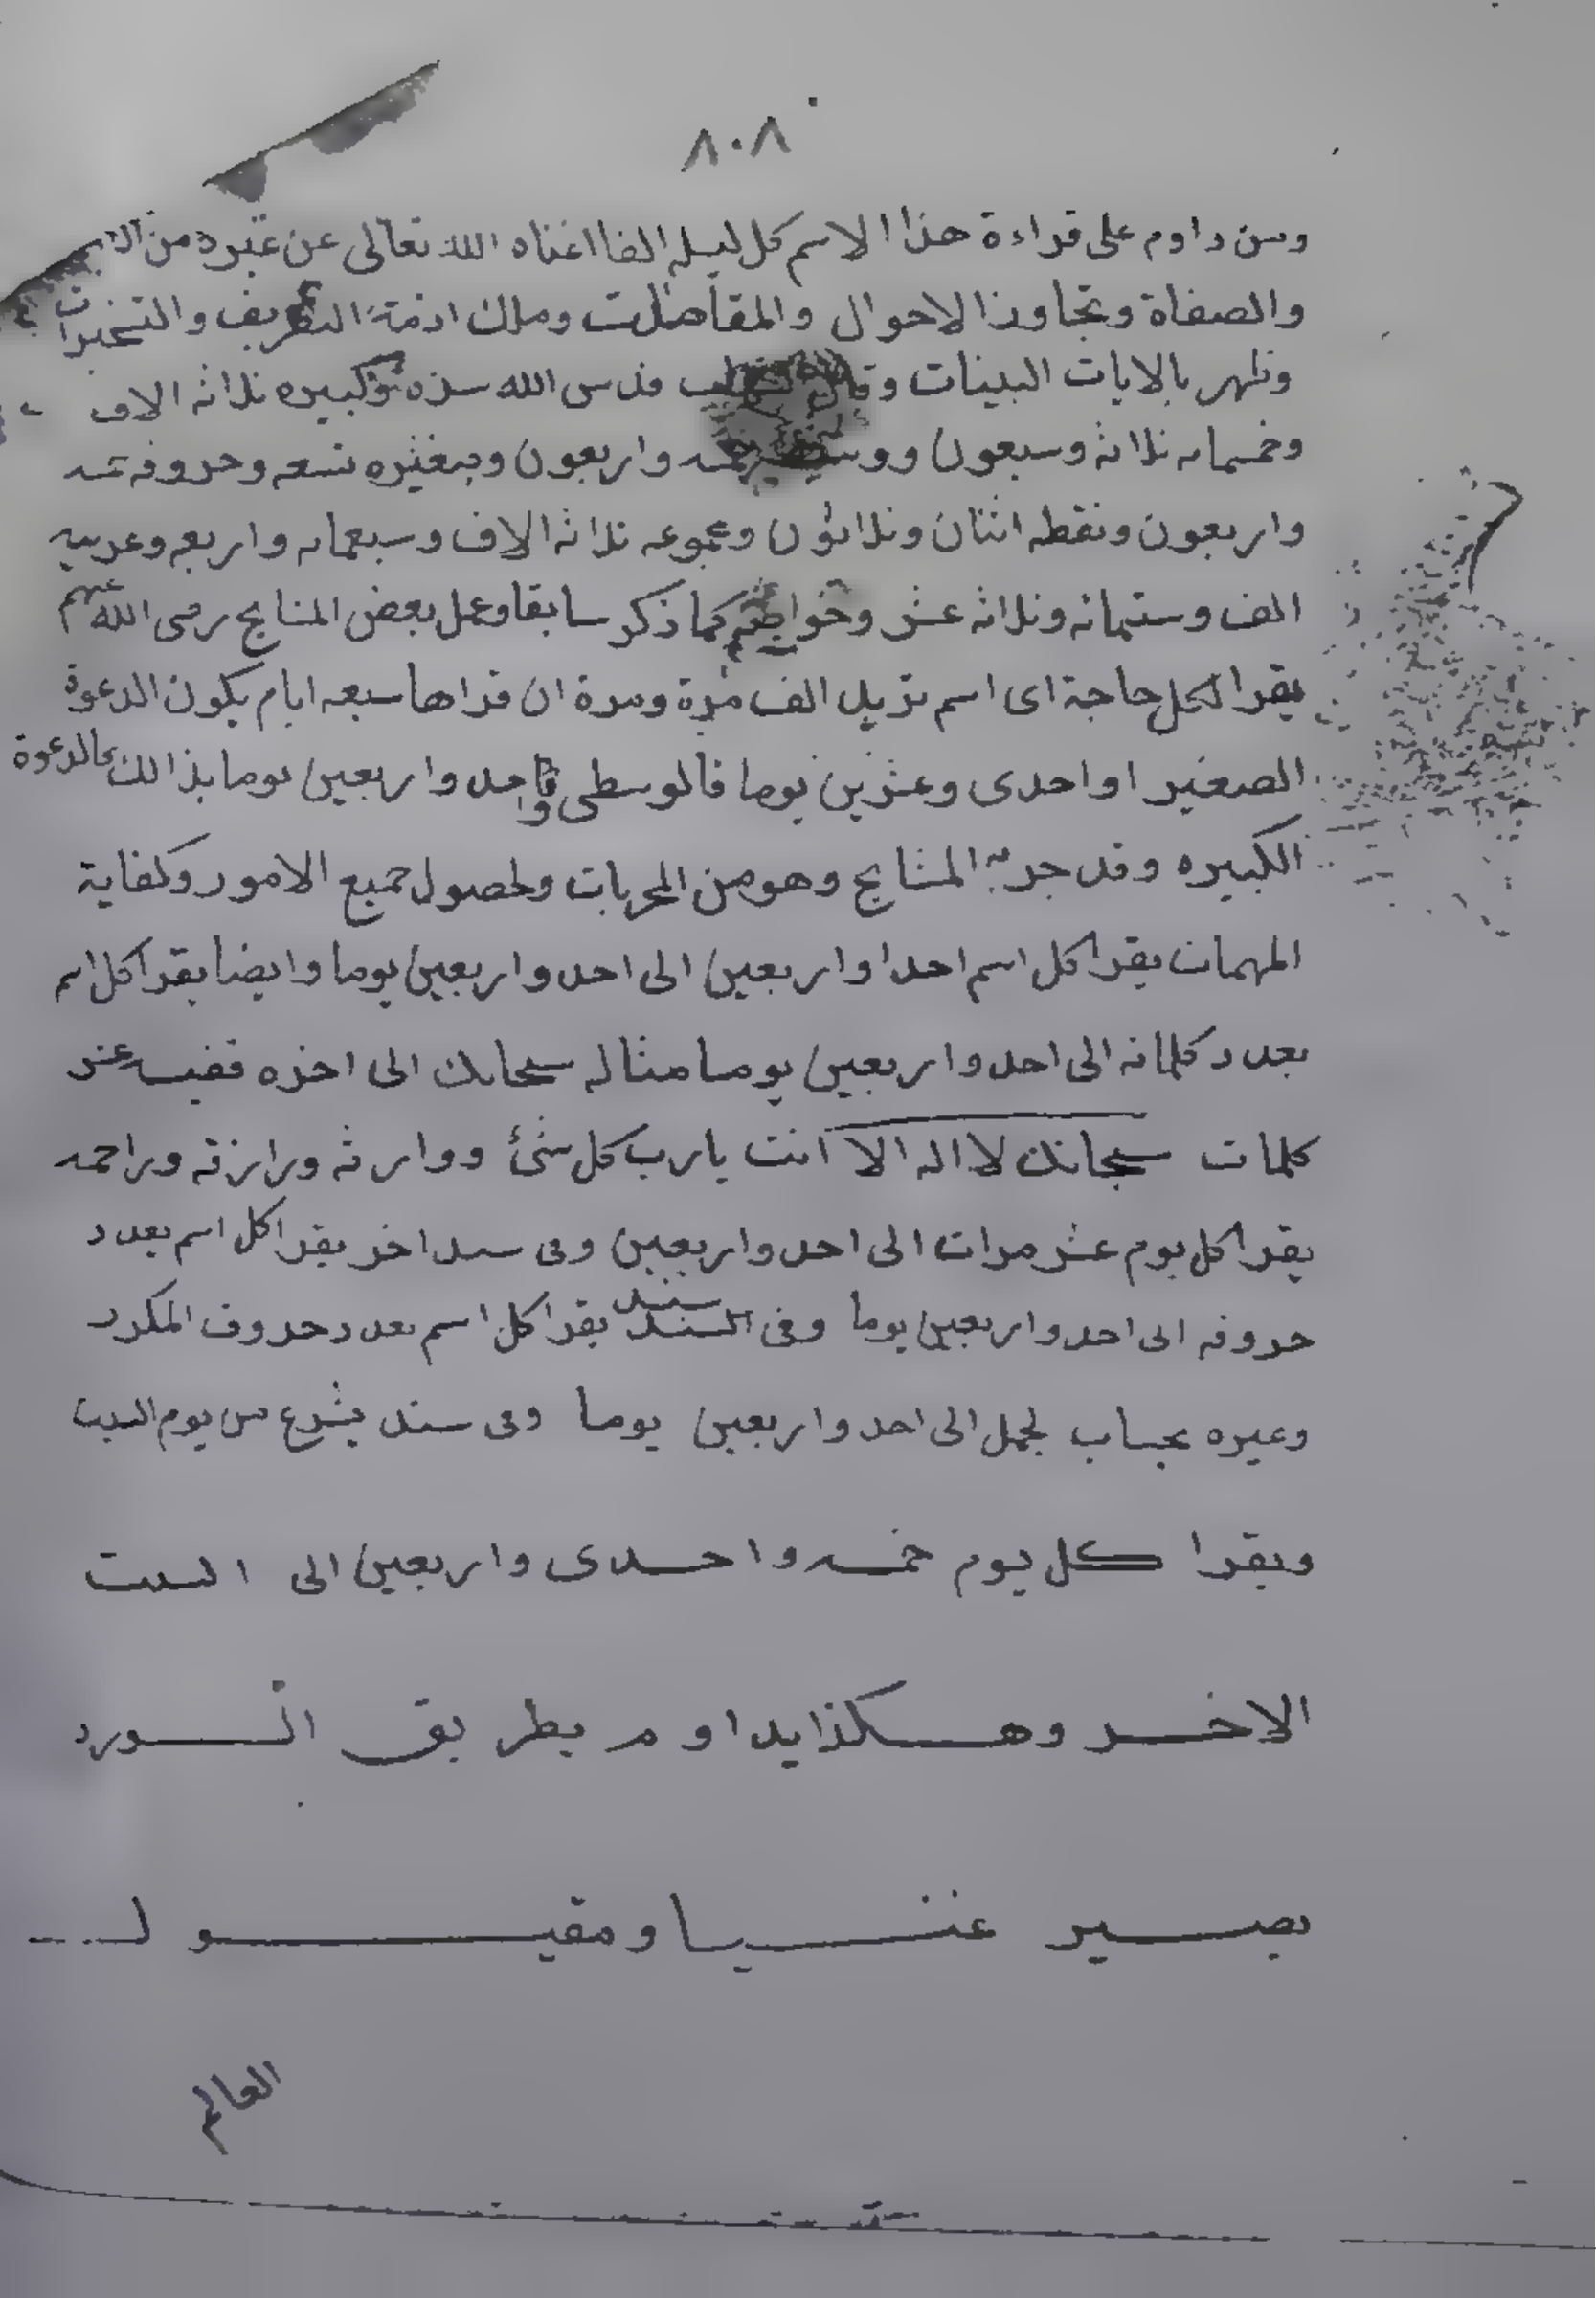 ٨٠٨
ومن داوم على قراءة هذا الاسم كل ليلة الفا اغناه الله تعالى عن غيره من
والصفاة وتجاوز الاحوال والمقامات وملك ازمة التصريف والتسخيرات
وظهر بالايات البينات وقال قدس الله سره وكبيره ثلاثه الاف
وخمسمايه ثلاثه وسبعون واربعون وصغيره تسعه وحروفه خمسه
واربعون ونقطه اثنان وثلاثون ومجموعه ثلاثه الاف وسبعمايه واربعه
الف وستمائه وثلاثه عشر وخواصهم كما ذكر سابقا وعمل بعض المشايخ رضى الله عنهم
يقرا لكل حاجة اى اسم تريد الف مرة ومرة ان قراها سبعه ايام يكون الدعوة
الصغير او احدى وعشرين يوما فالوسطى واحد واربعين يوما بذالك الدعوة
الكبيره وقد جربه المشايخ وهو من المجربات ولحصول جميع الامور وكفاية
المهمات يقرا كل اسم احدا واربعين الى احد واربعين يوما وايضا يقرا كل اسم
بعدد كلماته الى احد واربعين يوما مثاله سبحانك الى اخره ففيه عشر
كلمات سبحانك لا اله الا انت يا رب كل شئ ووارثه ورازقه وراحمه
يقرا كل يوم عشر مرات الى احد واربعين وفى سند اخر يقرا كل اسم بعدد
حروفه الى احد واربعين يوما وفى سند يقرا كل اسم بعدد حروف المكرر
وغيره بحساب لجمل الى احد واربعين يوما وفى سند يشرع من يوم السبت
ويقرا كل يوم خمسه واحدى واربعين الى السبت
الاخر وهكذا يداوم بطريق الورد
يصير غنيا ومقبول
العالم